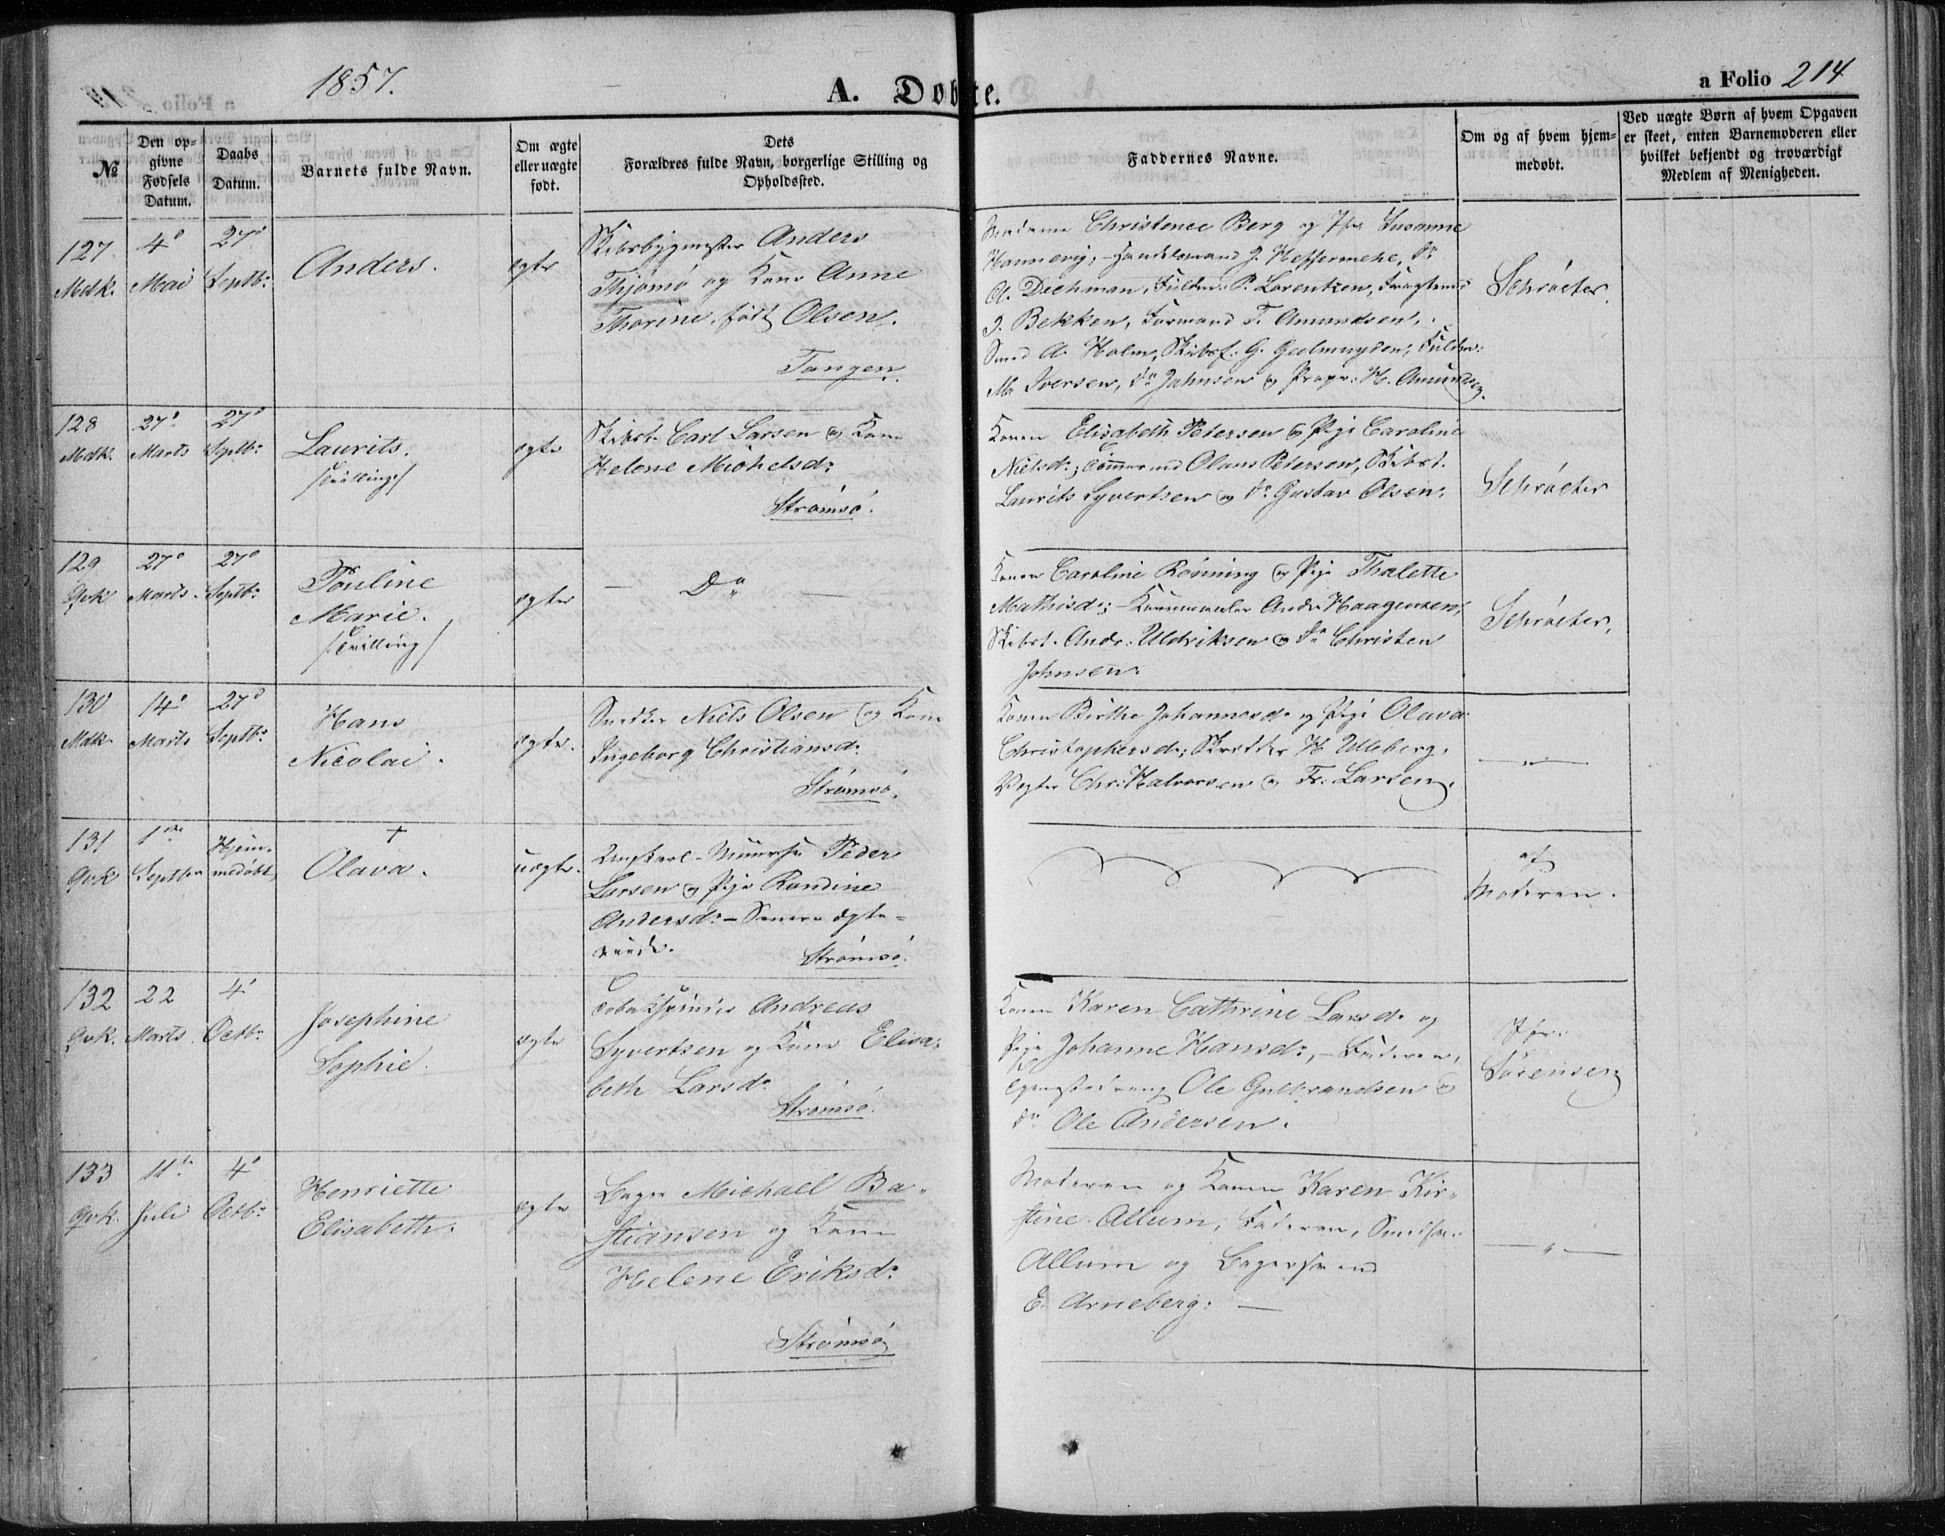 1857.
A. Døbte.
a Folio 214
№
Den opgivne Fødsels Datum.
Daabs Datum.
Barnets fulde Navn.
Om ægte eller uægte født.
Dets Forældres fulde Navn, borgerlige Stilling og Opholdssted.
Faddernes Navne.
Om og af hvem hjemmedøbt.
Ved uægte Børn af hvem Opgaven er skeet, enten Barnemoderen eller hvilket bekjendt og troværdigt Medlem af Menigheden.
127 Mdk.
4de Mai
27de Septbr
Anders.
ægte
Skibsbygmester Anders
Thjømø og Kone Anne
Thorine, født Olsen.
Tangen.
Madame Christence Berg og Jfr Susanne
Hannevig; Handelsmand J. Heffermehe, do
A. Dechman, Fuldm. P. Lorentzen,
J. Bekken, Formand T. Amundsen,
Smed A. Holm, Skibsf. G. Geelmuyden, Fuldm:
Iversen, do Jahnsen og Propr. H. Amundsen.
Schrøeter
128 Mdk.
27de Marts
27de Septbr
Laurits.
/Tvilling/
ægte
Skibst. Carl Larsen og Kone
Helene Michelsdr
Strømsø.
Konen Elisabeth Petersen og Pige Caroline
Nielsdr; Tømmermd Olaus Petersen, Skibst.
Laurits Syvertsen og do Gustav Olsen.
Schrøeter
129 Qvk
27de Marts
27de Septbr
Pouline
Marie.
/Tvilling/
ægte
— Do —
Konen Caroline Rønning og Pige Thalette
Mathisdr; Andr Haagensen,
Skibst. Andr. Uldriksen og do Christen
Johnsen.
Schrøeter.
130 Mdk.
14de Marts
27de Septbr
Hans
Nicolai.
ægte.
Snedker Niels Olsen og Kone
Ingeborg Christiansdr
Strømsø.
Konen Birthe Johannesdr og Pige Olava
Christophersdr; Skredder H. Ulleberg,
Vægter Chr. Halvorsen og Fr. Larsen.
— " —
131 Qvk
1ste Septbr
Hjemmedøbt
†
Olava.
uægte.
Ungkarl Peder
Larsen og Pige Randine
Andersdr – Senere Ægte-
viede.
Strømsø.
af
Moderen.
132 Qvk.
22 Marts
4de Octbr
Josephine
Sophie.
ægte
Tobakspinder Andreas
Syvertsen og Kone Elisa-
beth Larsdr
Strømsø.
Konen Karen Cathrine Larsdr og
Pige Johanne Hansdr, – Faderen,
Ole Gulbrandsen og
do Ole Andersen.
Jfr.
Sørensen
133 Qvk.
11te Juli
4de Octbr
Henriette
Elisabeth.
ægte
Bager Michael Ba-
stiansen og Kone
Helene Eriksdr
Strømsø
Moderen og Konen Karen Kir-
stine Allum, Faderen,
Allum og Bagersvend
E. Arneberg. —
— " —